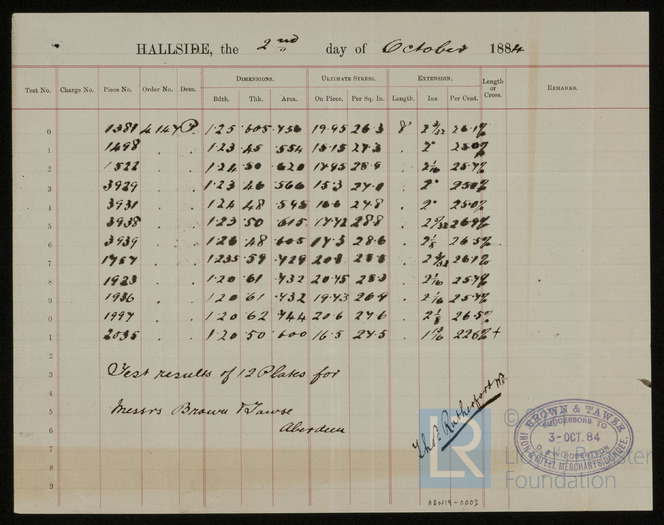 HALLSIDE, the 2nd day of October 1884
Test No. Charge No. Piece No. Order No. Desn. DIMENSIONS. ULTIMATE STRESS. EXTENSION. Length or Cross. REMARKS.
Bdth. Thk. Area. On Piece. Per Sq. In. Length. Ins Per Cent.
0 1381 4147 P. 1.25 .605 .756 19.95 26.3 8" 2 3/32 26.1%
1 1498 . . 1.23 .45 .554 15.15 27.3 . 2" 25.0%
2 1522 . . 1.24 .50 .620 17.95 28.9 . 2 1/16 25.7%
3 3929 . . 1.23 .46 .566 15.3 27.0 . 2" 25.0%
4 3931 . . 1.24 .48 .595 16.6 27.8 . 2" 25.0%
5 3938 . . 1.23 .50 .615 17.72 28.8 .
6 3939 . . 1.26 .48 .605 17.3 28.6 . 2 1/8 26.5%
7 1757 . . 1.235 .59 .729 20.8 26.1%
8 1923 . . 1.20 .61 .732 20.75 28.3 . 2 1/16 25.7%
9 1936 . . 1.20 .61 .732 19.73 26.9 . 2 1/16 25.7%
0 1997 . . 1.20 .62 .744 20.6 27.6 . 2 1/8 26.5%
1 2035 . . 1.20 .50 .600 16.5 27.5 . 22.6% +
2
3 Test results of 12 Plates for
4
5 Messrs Brown & Tawse
6 Aberdeen
7
8
9
Thos Rutherford
BROWN & TAWSE
SUCCESSORS TO
3-OCT.84
D. & W. ROBERTSON
IRON & STEEL MERCHANTS DUNDEE.
LR
©
Lloyd's Register
Foundation
ABN19-0003